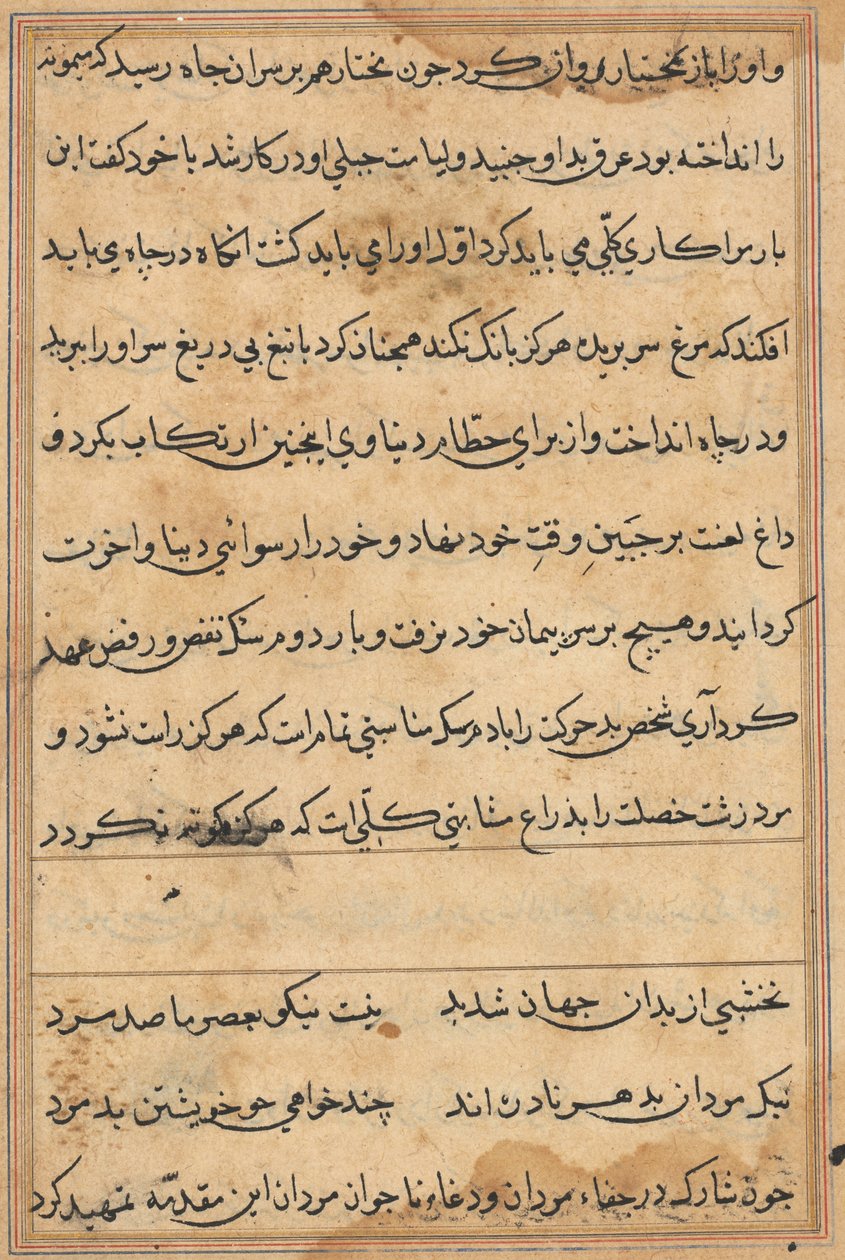 و او را باز بختیار روان کرد جون بختار هم بر سر ان جاه رسید که میمونه
را انداخته بود عرق بد او جنبید و لیامت جبلي او در کار شد با خود کفت این
بار مرا کاري کلّي مي باید کرد اوّل او را مي باید کشت انکاه در چاه مي باید
افکند که مرغ سر بریده هرکز بانک نکند همجنان کرد با تیغ بي دریغ سر او را ببرید
و در چاه انداخت و از براي حطّام دنیاوي اینچنین ارتکاب بکرد و
داغ لعنت بر جبَینِ وقتِ خود نهاد و خود را رسوائي دنیا و اخرت
کردانید و هیچ بر سر پیمان خود نرفت و بار دوم سنک نقض و رفض عهد
کرد آري شخص بد حرکت را با دم سک مناسبتي تمام است که هرکز راست نشود و
مرد زشت خصلت را بذراع مشابهتي کلّي است که هرکز نکردد
نخشبي از بدان جهان شد بد نیست نیکو بعصر ما صد مرد
نیک مردان بدهر نادره اند چند خواهي خو خویشتن بد مرد
جون شارک در جفاء مردان و دغاء ناجوان مردان این مقدّمه تمهید کرد